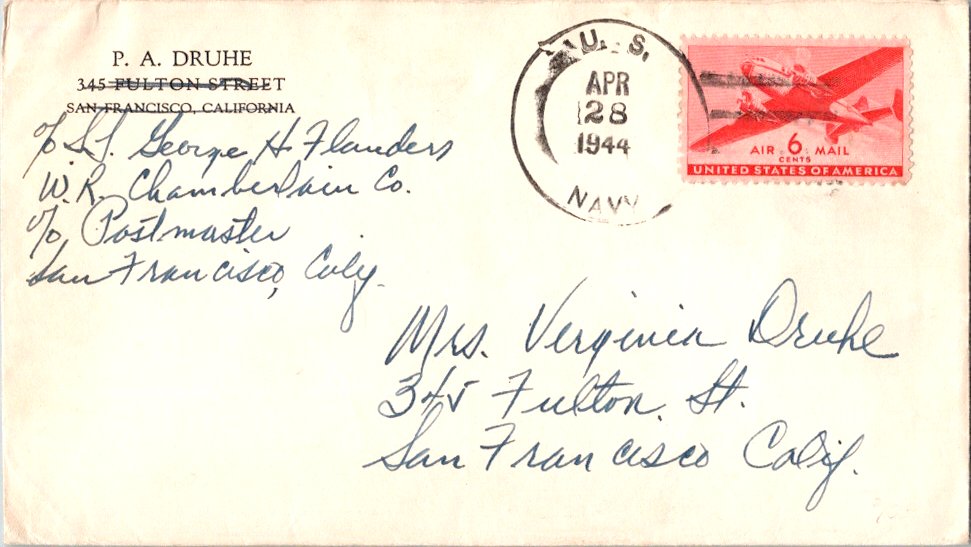 P. A. DRUHE
345 FULTON STREET
SAN FRANCISCO, CALIFORNIA
℅ S.S. George H Flanders
W. R. Chamberlain Co.
℅ Postmaster
San Francisco, Calif.
U. S.
APR
28
1944
NAVY
AIR 6 MAIL
CENTS
UNITED STATES OF AMERICA
Mrs. Verginia Druhe
345 Fulton St.
San Francisco Calif.